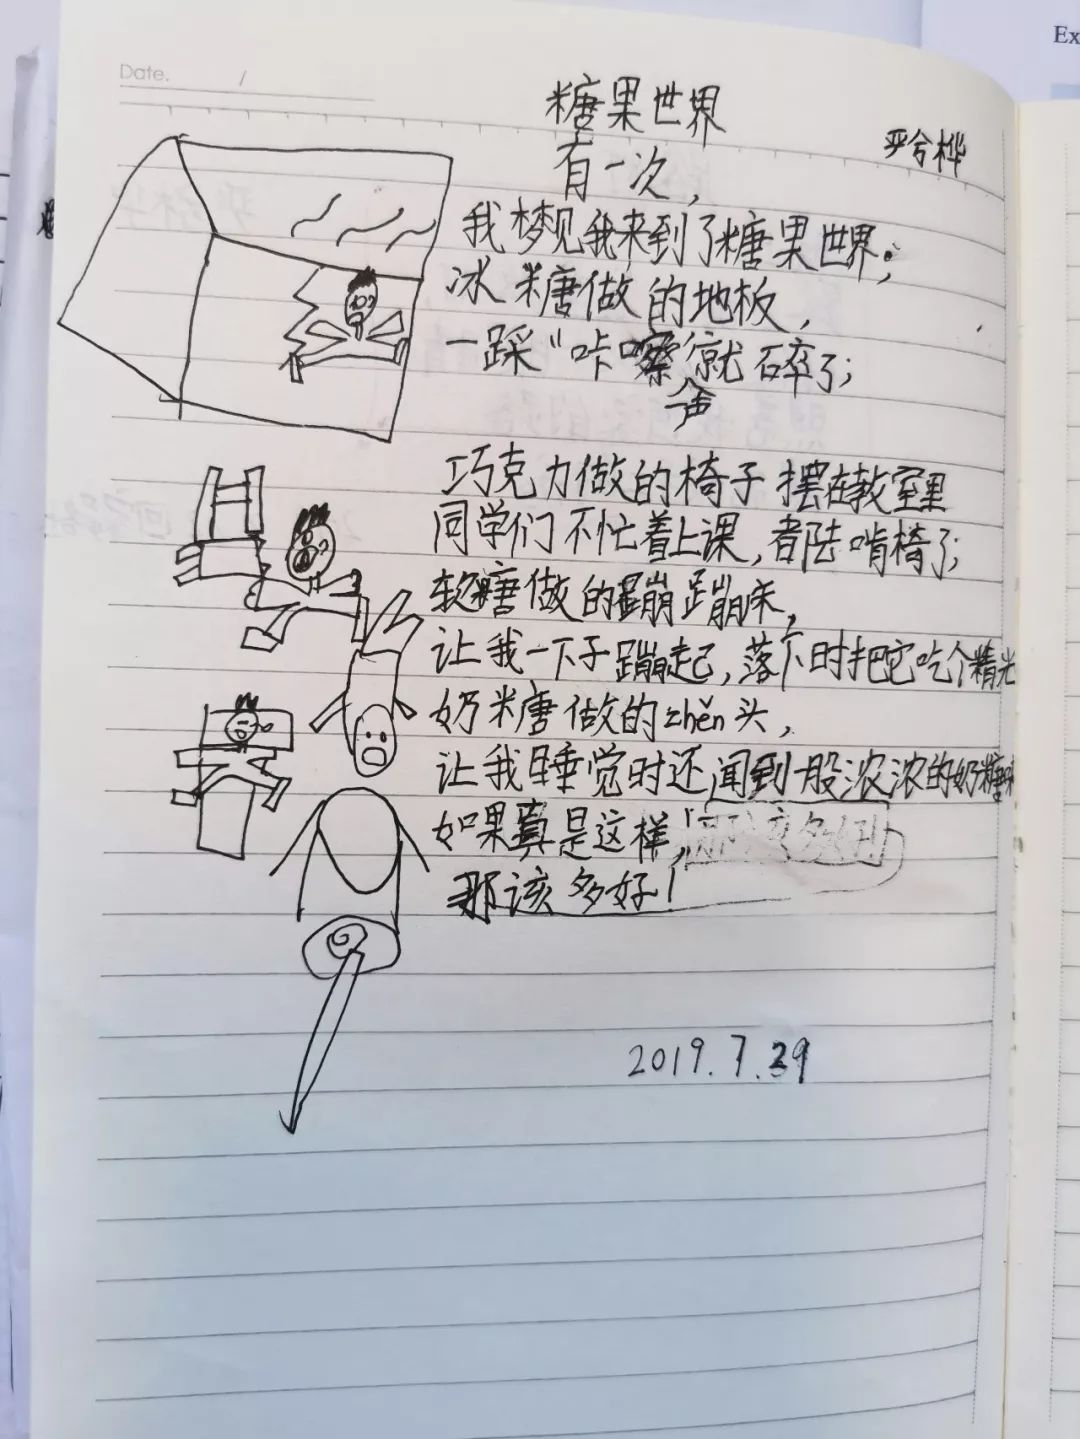 Ex
Date. /
糖果世界
严兮桦
有一次，
我梦见我来到了糖果世界；
冰糖做的地板，
一踩"咔嚓"一声就碎了；
巧克力做的椅子摆在教室里
同学们不忙着上课，都陆啃椅子；
软糖做的蹦蹦床，
让我一下子蹦起，落下时把它吃个精光
奶糖做的zhěn头，
让我睡觉时还闻到一股浓浓的奶糖味
如果真是这样，
那该多好！
2019.7.29